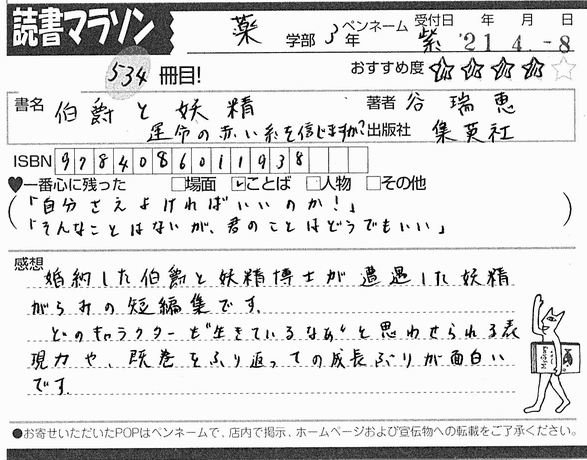 読書マラソン
薬 学部 3年 ペンネーム 紫 受付日 年 月 日
'21 4.-8
534 冊目!
おすすめ度 ★★★★☆
書名 伯爵と妖精 著者 谷 瑞恵
運命の赤い糸を信じますか? 出版社 集英社
ISBN 9784086011938
♥一番心に残った □場面 ☑ことば □人物 □その他
「自分さえよければいいのか!」
「そんなことはないが、君のことはどうでもいい」
感想
婚約した伯爵と妖精博士が遭遇した妖精
がらみの短編集です。
どのキャラクターも"生きているなあ"と思わせられる表
現力や、既巻をふり返っての成長ぶりが面白い
です。
●お寄せいただいたPOPはペンネームで、店内で掲示、ホームページおよび宣伝物への転載をご了承ください。